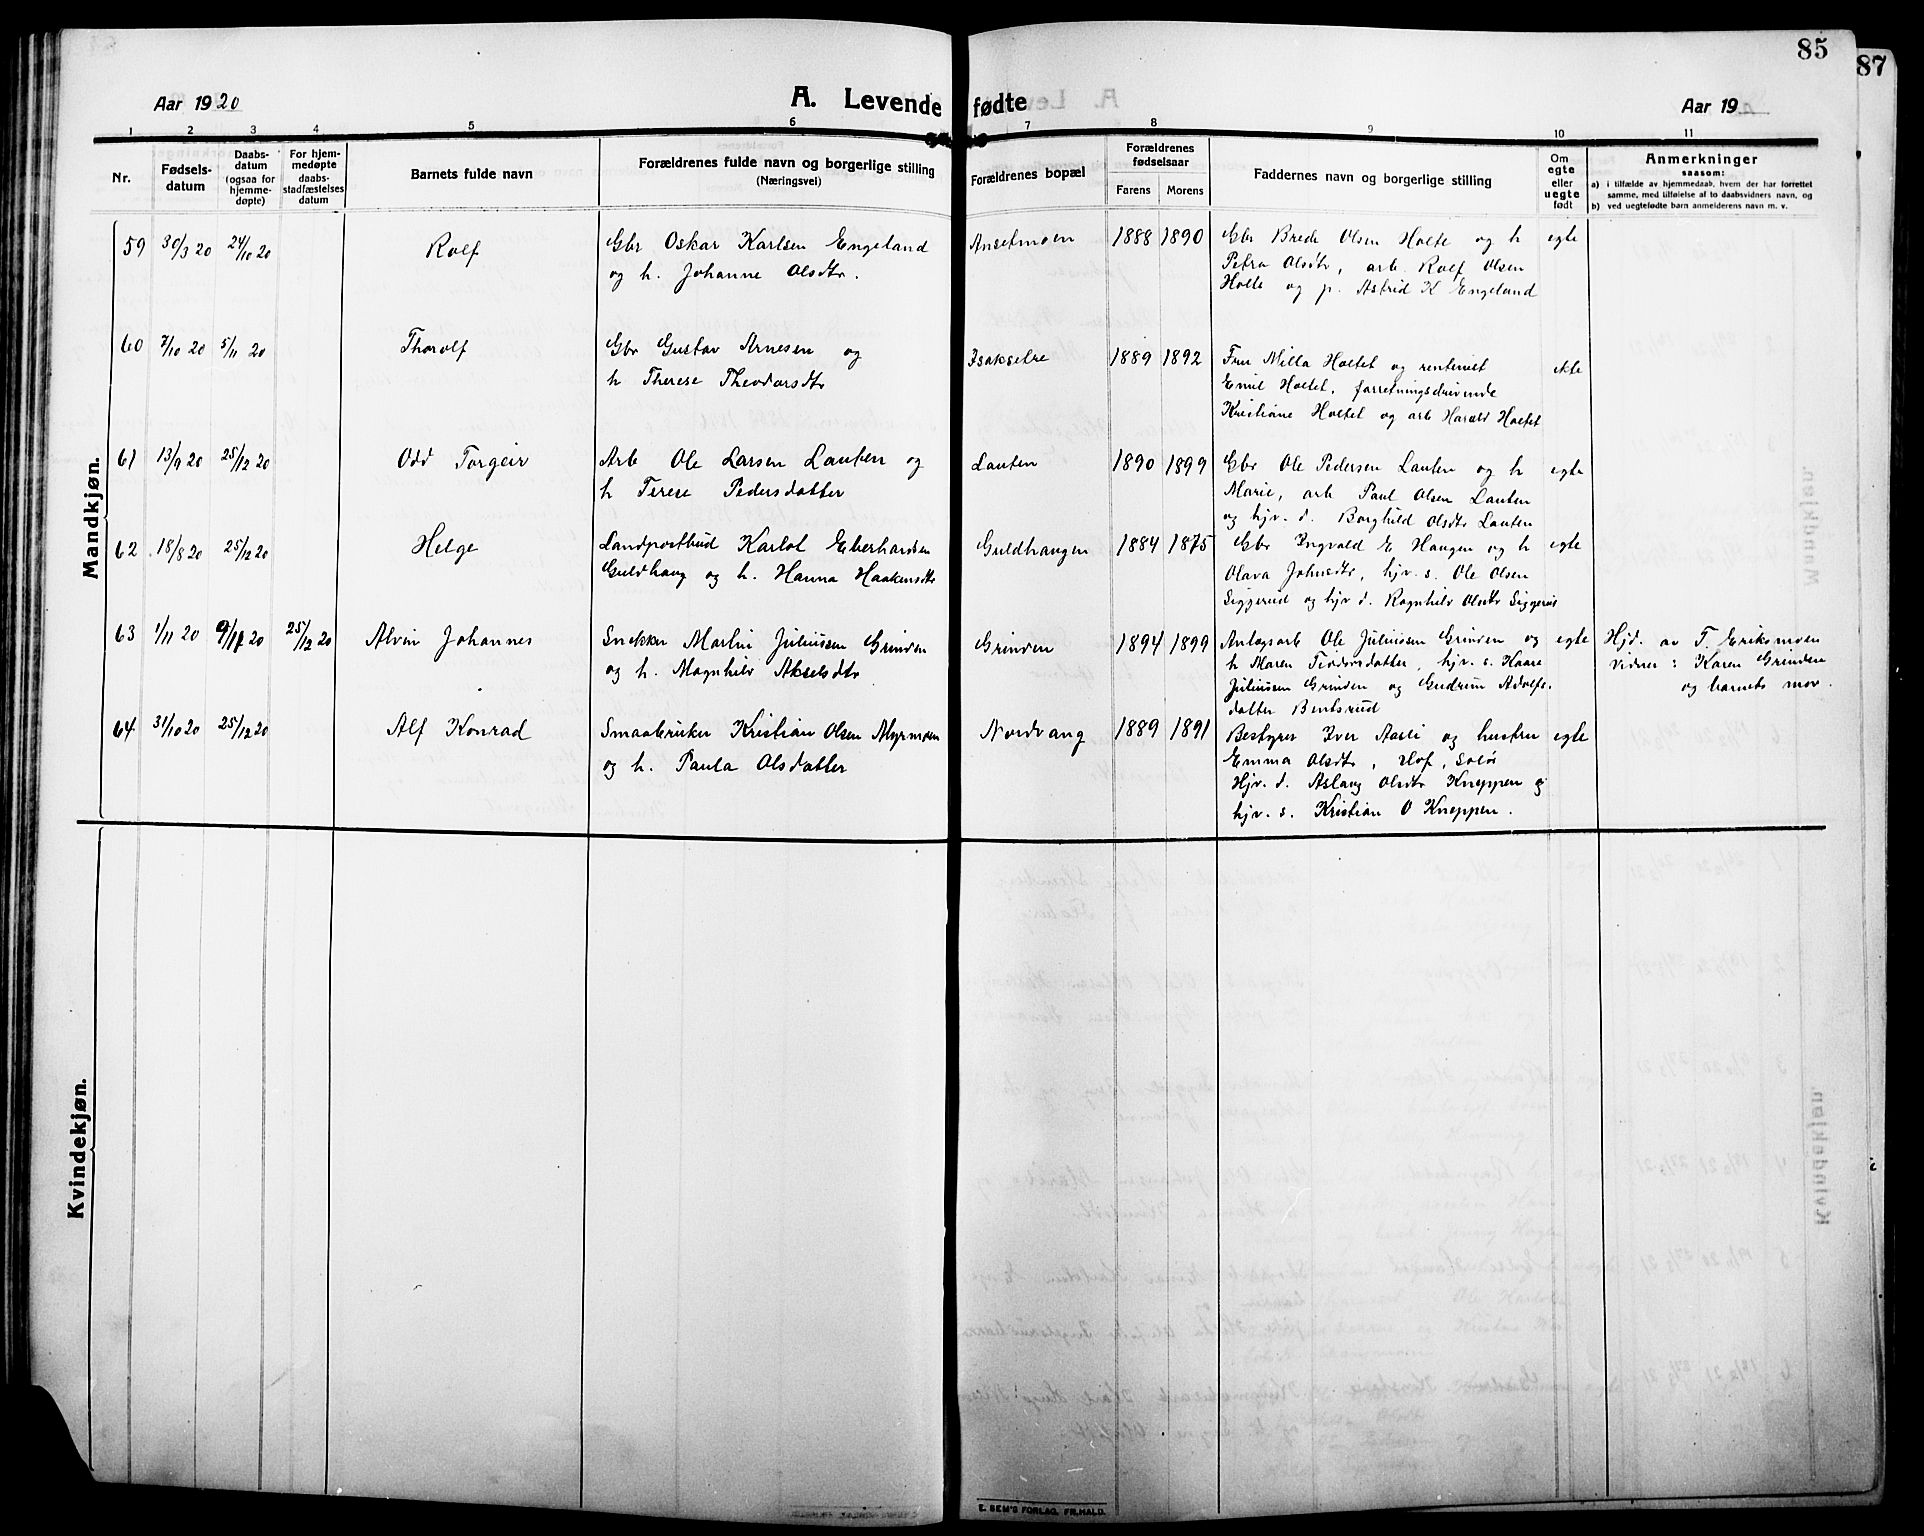 85
87
Aar 1920
A. Levende fødte
Aar 19
1 2 3 4 5 6 7 8 9 10 11
Nr.
Fødsels-
datum
Daabs-
datum
(ogsaa for
hjemme-
døpte)
For hjem-
medøpte
daabs-
stadfæstelses
datum
Barnets fulde navn
Forældrenes fulde navn og borgerlige stilling
(Næringsvei)
Forældrenes bopæl
Forældrenes
fødselsaar
Farens Morens
Faddernes navn og borgerlige stilling
Om
egte
eller
uegte
født
Anmerkninger
saasom:
a) i tilfælde av hjemmedaab, hvem der har forrettet
samme, med tilføielse af to daabsvidners navn, og
b) ved uegtefødte barn anmelderens navn m. v.
Mandkjøn.
59 30/3 20 24/10 20 Rolf Gbr Oskar Karlsen Engeland Ansetmoen 1888 1890 Gbr Brede Olsen Holte og h egte
og h. Johanne Olsdtr. Petra Olsdtr, arb. Rolf Olsen
Holte og p. Astrid K Engeland
60 7/10 20 5/11 20 Thorolf Gbr Gustav Arnesen og Isakselve 1889 1892 Fru Milla Holtet og rentenist ekte
h Therese Theodorsdtr Emil Holtet, forretningsdrivende
Kristiane Holtet og arb Harald Holtet
61 13/9 20 25/12 20 Odd Torgeir Arb Ole Larsen Lauten og Lauten 1890 1899 Gbr Ole Pedersen Lauten og h egte
h Terese Pedersdatter Marie, arb Paul Olsen Lauten
og hjv. d. Borghild Olsdtr Lauten
62 18/8 20 25/12 20 Helge Landpostbud Karlot Eberhardsen Guldhaugen 1884 1875 Gbr Ingvald E Haugen og h egte
Guldhaug og h. Hanna Haakensdtr Olava Johnsdtr, hjv. s. Ole Olsen
Siggerud og hjv d. Ragnhild Olsdtr Siggerud
63 1/11 20 9/11 20 25/12 20 Alvin Johannes Snekker Martin Juliussen Grinden Grinden 1894 1899 Anlægsarb Ole Juliussen Grinden og egte Hjd. av T. Eriksmoen
og h. Magnhild Akselsdtr h Maren Teodorsdatter, hjv. s. Kaare Vidner: Karen Grinden
Juliussen Grinden og Gudrun Adolfs- og barnets mor.
datter Bentsrud
64 31/10 20 25/12 20 Alf Konrad Smaabruker Kristian Olsen Myrmoen Nordvang 1889 1891 Bestyrer Iver Aasli og hustru egte
og h. Paula Olsdatter Emma Olsdtr, Hof, Solør
Hjv. d. Aslaug Olsdtr Kneppen og
hjv. s. Kristian O Kneppen.
Kvindekjøn.
E. SEM'S FORLAG, FR.HALD.